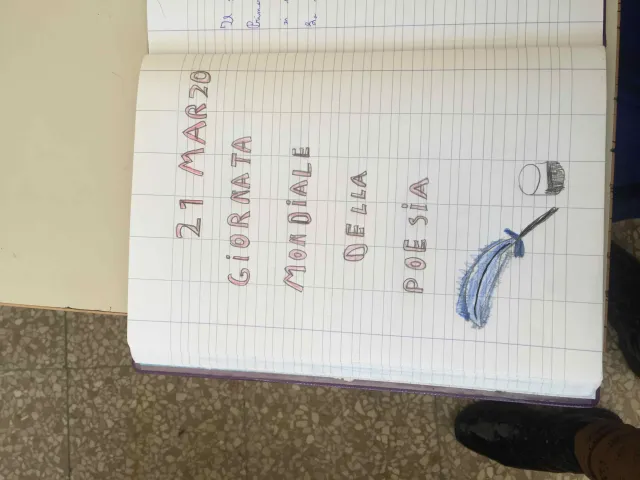 21 MARZO
GiORNATA
MONDiALE
DELLA
POESiA